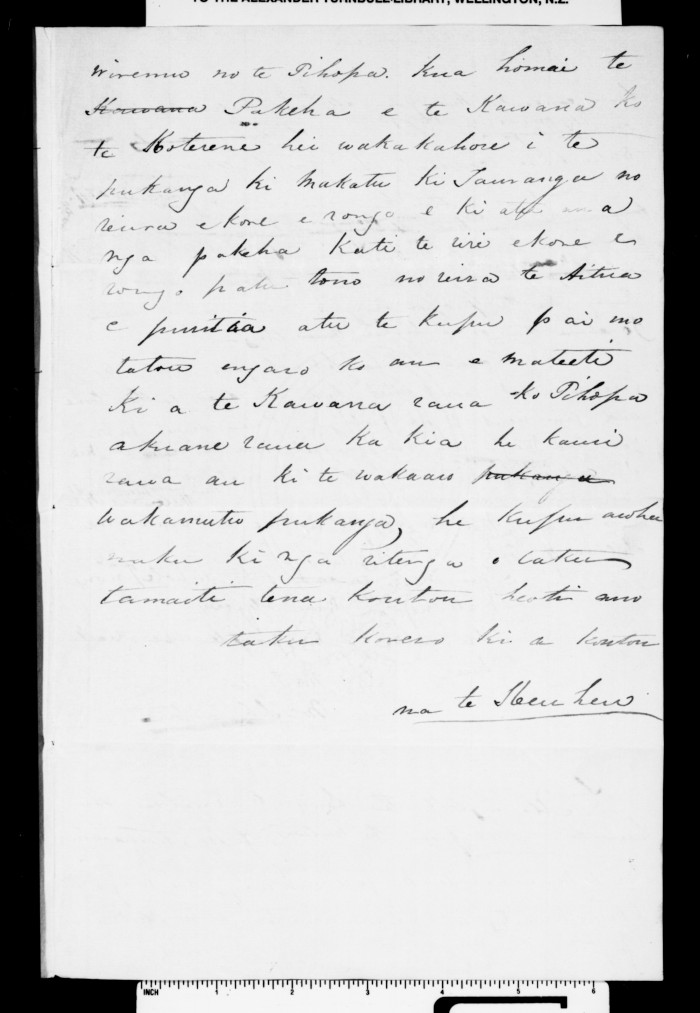 TO THE ALEXANDER TURNBULL LIBRARY, WELLINGTON, N.Z.
Wiremu no te Pihopa. Kua homai te
Kawana Pakeha e te Kawana ko
te Koterene hei wakakahore i te
pukanga ki Makatu ki Tauranga no
reira ekore e rongo e ki atu ana
nga pakeha Kati te riri ekore e
rongo patu tono no reira te Aitua
e puritia atu te kupu pai mo
tatou engaro ko au e mateeti
Ki a te Kawana raua ko Pihopa
akuane raua ka kia he kauri
rawa au ki te wakaaro pukanga
wakamutu pukanga, he kupu aroha
naku ki nga ritenga o taku
tamaiti tena koutou heoti ano
taku korero ki a koutou
na te Heu heu
INCH 1 2 3 4 5 6